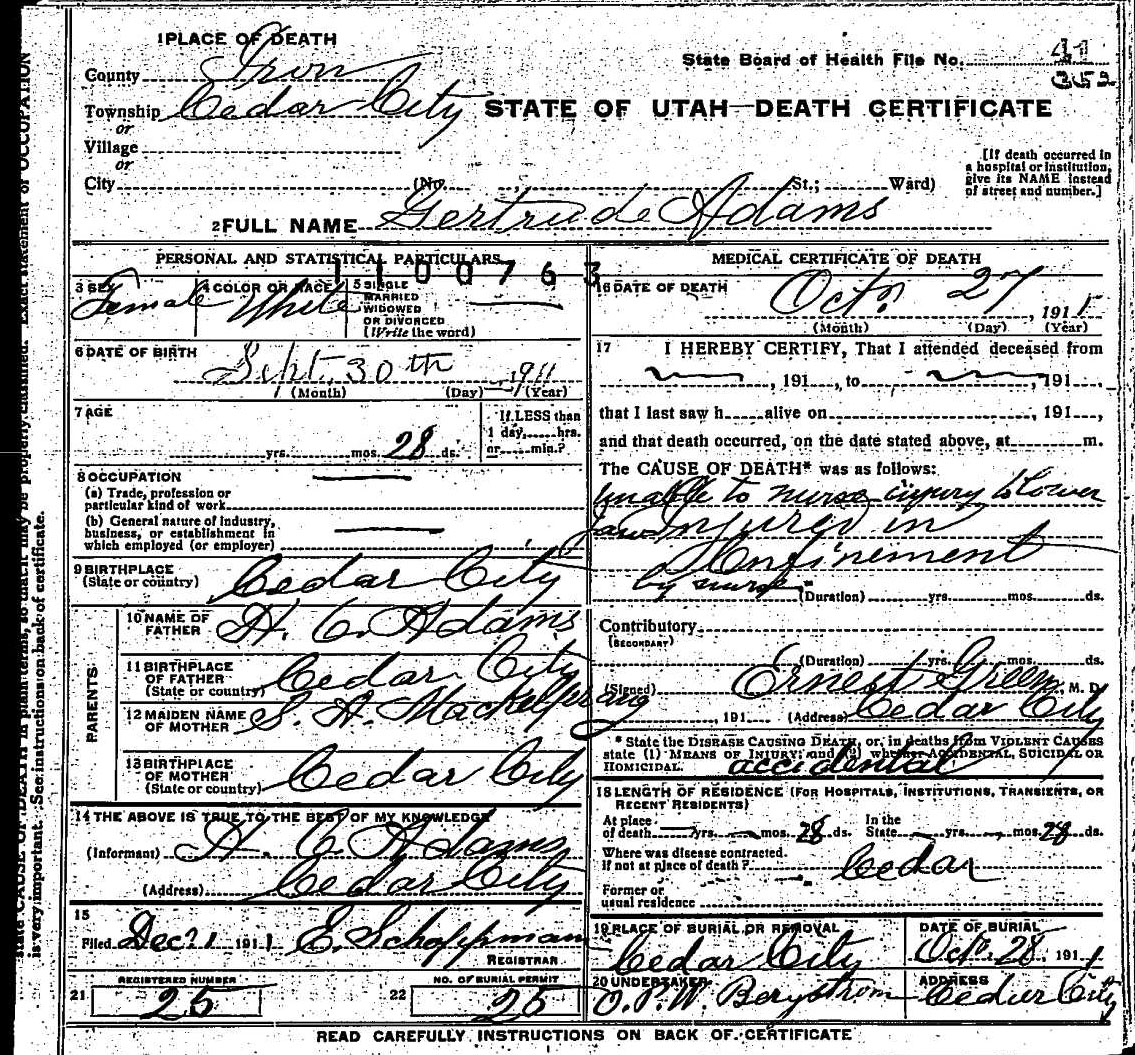 1 PLACE OF DEATH
County Iron
State Board of Health File No. 41
352
Township Cedar City
STATE OF UTAH—DEATH CERTIFICATE
or
Village
or
City (No. , St.; Ward)
[If death occurred in
a hospital or institution,
give its NAME instead
of street and number.]
2 FULL NAME Gertrude Adams
PERSONAL AND STATISTICAL PARTICULARS
1100763
3 SEX Female
4 COLOR OR RACE White
5 SINGLE
MARRIED
WIDOWED
OR DIVORCED
(Write the word)
6 DATE OF BIRTH
Sept. 30th 1911
(Month) (Day) (Year)
7 AGE
yrs. mos. 28 ds.
If LESS than
1 day, hrs.
or min.?
8 OCCUPATION
(a) Trade, profession or
particular kind of work
(b) General nature of industry,
business, or establishment in
which employed (or employer)
9 BIRTHPLACE
(State or country) Cedar City
PARENTS
10 NAME OF
FATHER H. C. Adams
11 BIRTHPLACE
OF FATHER
(State or country) Cedar City
12 MAIDEN NAME
OF MOTHER S. A. Mackelprang
13 BIRTHPLACE
OF MOTHER
(State or country) Cedar City
14 THE ABOVE IS TRUE TO THE BEST OF MY KNOWLEDGE
(Informant) H. C. Adams
(Address) Cedar City
15
Filed Dec 21 1911 E. Schoppmann
REGISTRAR
REGISTERED NUMBER
21 25
NO. OF BURIAL PERMIT
22 25
MEDICAL CERTIFICATE OF DEATH
16 DATE OF DEATH
Oct. 27, 1911
(Month) (Day) (Year)
17 I HEREBY CERTIFY, That I attended deceased from
, 191 , to , 191 ,
that I last saw h alive on , 191 ,
and that death occurred, on the date stated above, at m.
The CAUSE OF DEATH* was as follows:
Unable to nurse injury to lower
jaw Injured in
Confinement
by nurse
(Duration) yrs. mos. ds.
Contributory
(SECONDARY)
(Duration) yrs. mos. ds.
(Signed) Ernest Green, M. D.
, 191 (Address) Cedar City
* State the DISEASE CAUSING DEATH, or, in deaths from VIOLENT CAUSES
state (1) MEANS OF INJURY; and (2) whether ACCIDENTAL, SUICIDAL OR
HOMICIDAL. accidental
18 LENGTH OF RESIDENCE (FOR HOSPITALS, INSTITUTIONS, TRANSIENTS, OR
RECENT RESIDENTS)
At place
of death yrs. mos. 28 ds.
In the
State yrs. mos. 28 ds.
Where was disease contracted,
If not at place of death? Cedar
Former or
usual residence
19 PLACE OF BURIAL OR REMOVAL
Cedar City
DATE OF BURIAL
Oct. 28, 1911
20 UNDERTAKER
O. P. W. Bergstrom
ADDRESS
Cedar City
READ CAREFULLY INSTRUCTIONS ON BACK OF CERTIFICATE
state CAUSE OF DEATH in plain terms, so that it may be properly Exact statement of OCCUPATION
is very important. See instructions on back of certificate.